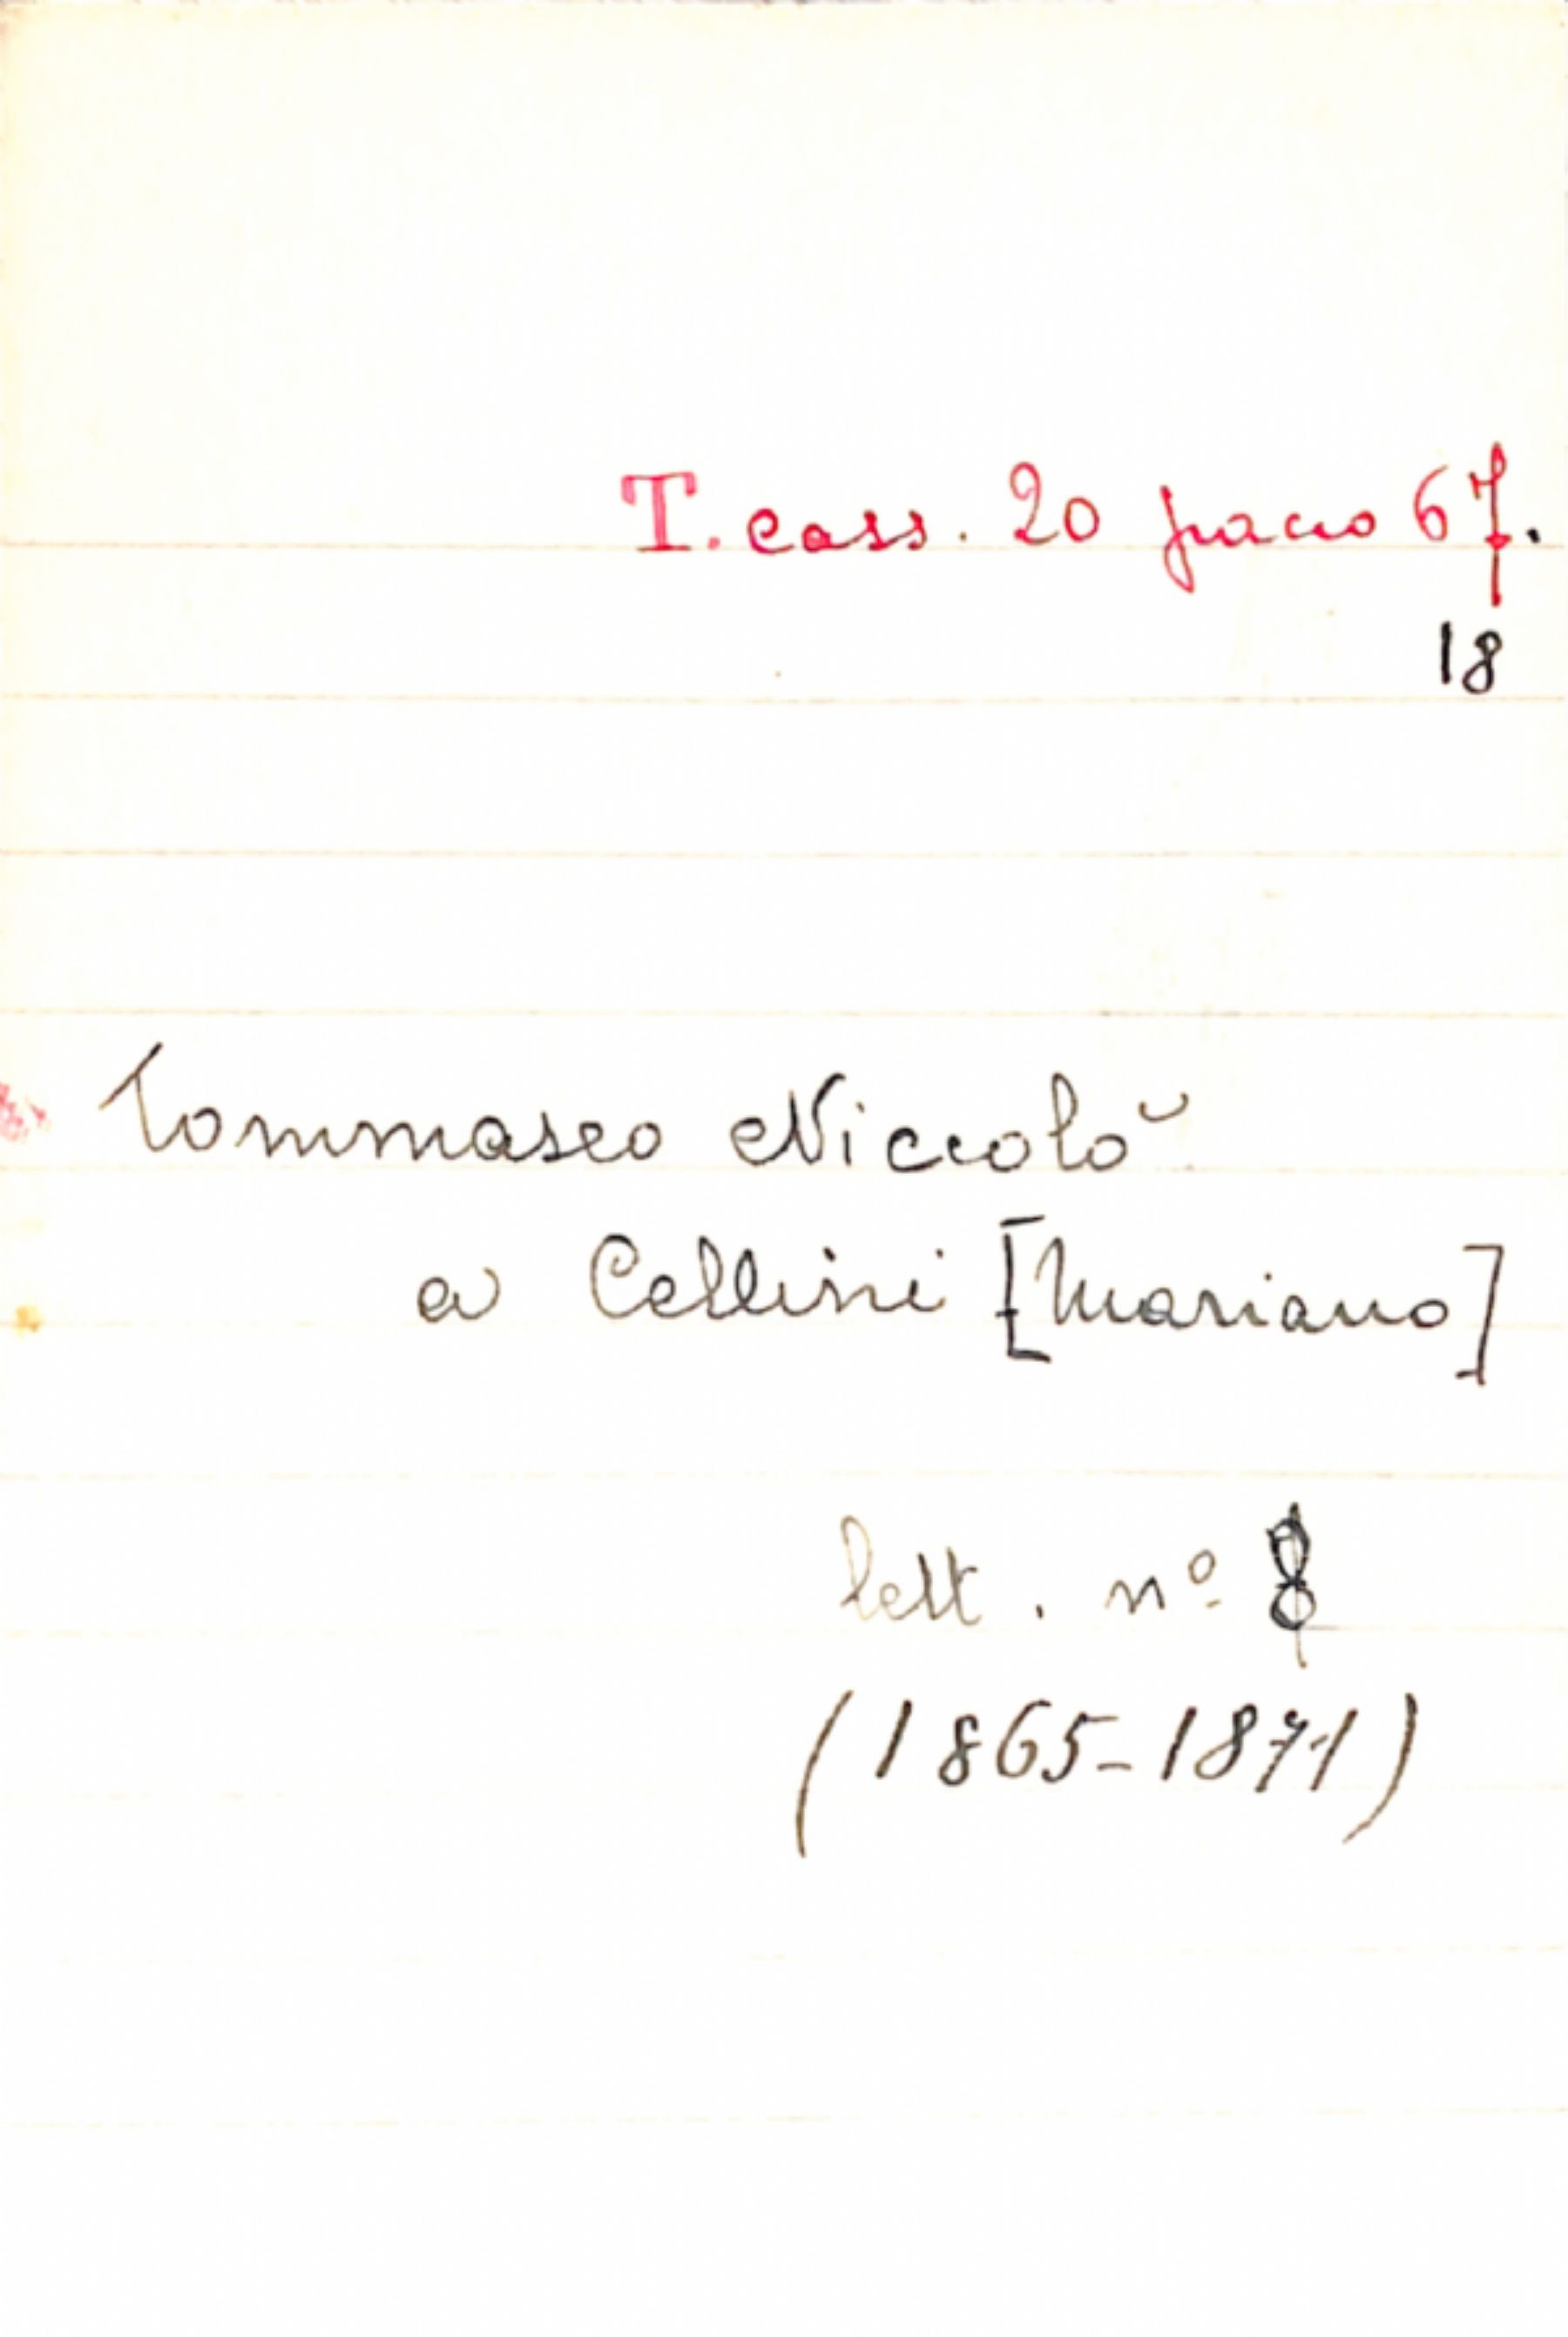 T. cass. 20 pacco 67.
18
Tommaseo Niccolò
a Cellini [Mariano]
lett. nº 8
(1865-1871)